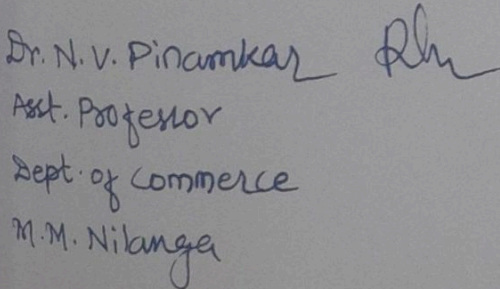 Dr. N. V. Pinamkar
Asst. Professor
Dept. of Commerce
M.M. Nilanga